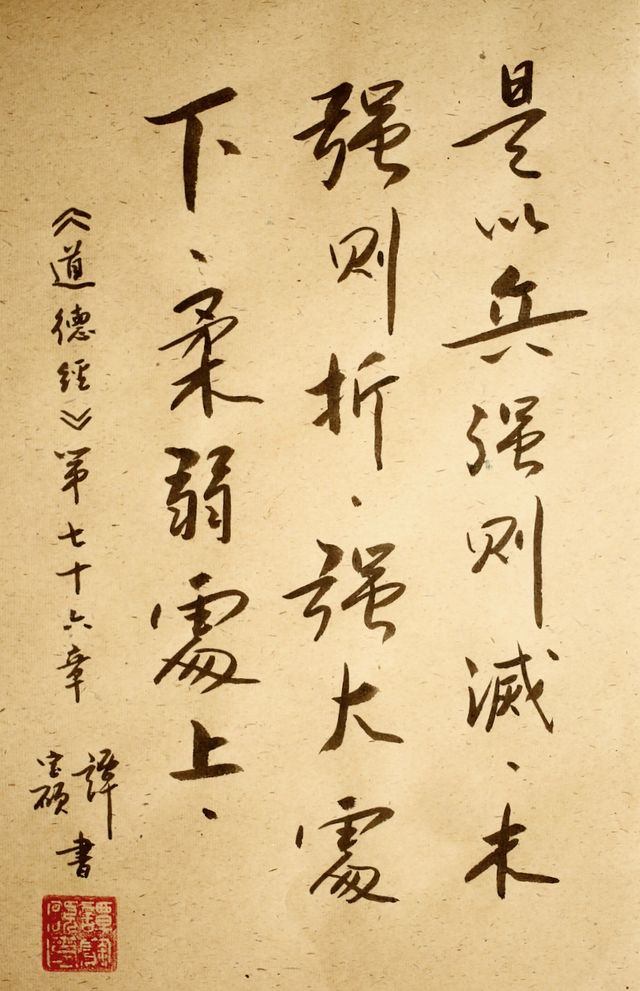 是以兵强则滅、木
强则折、强大處
下、柔弱處上、
《道德經》第七十六章
譚
硕
書